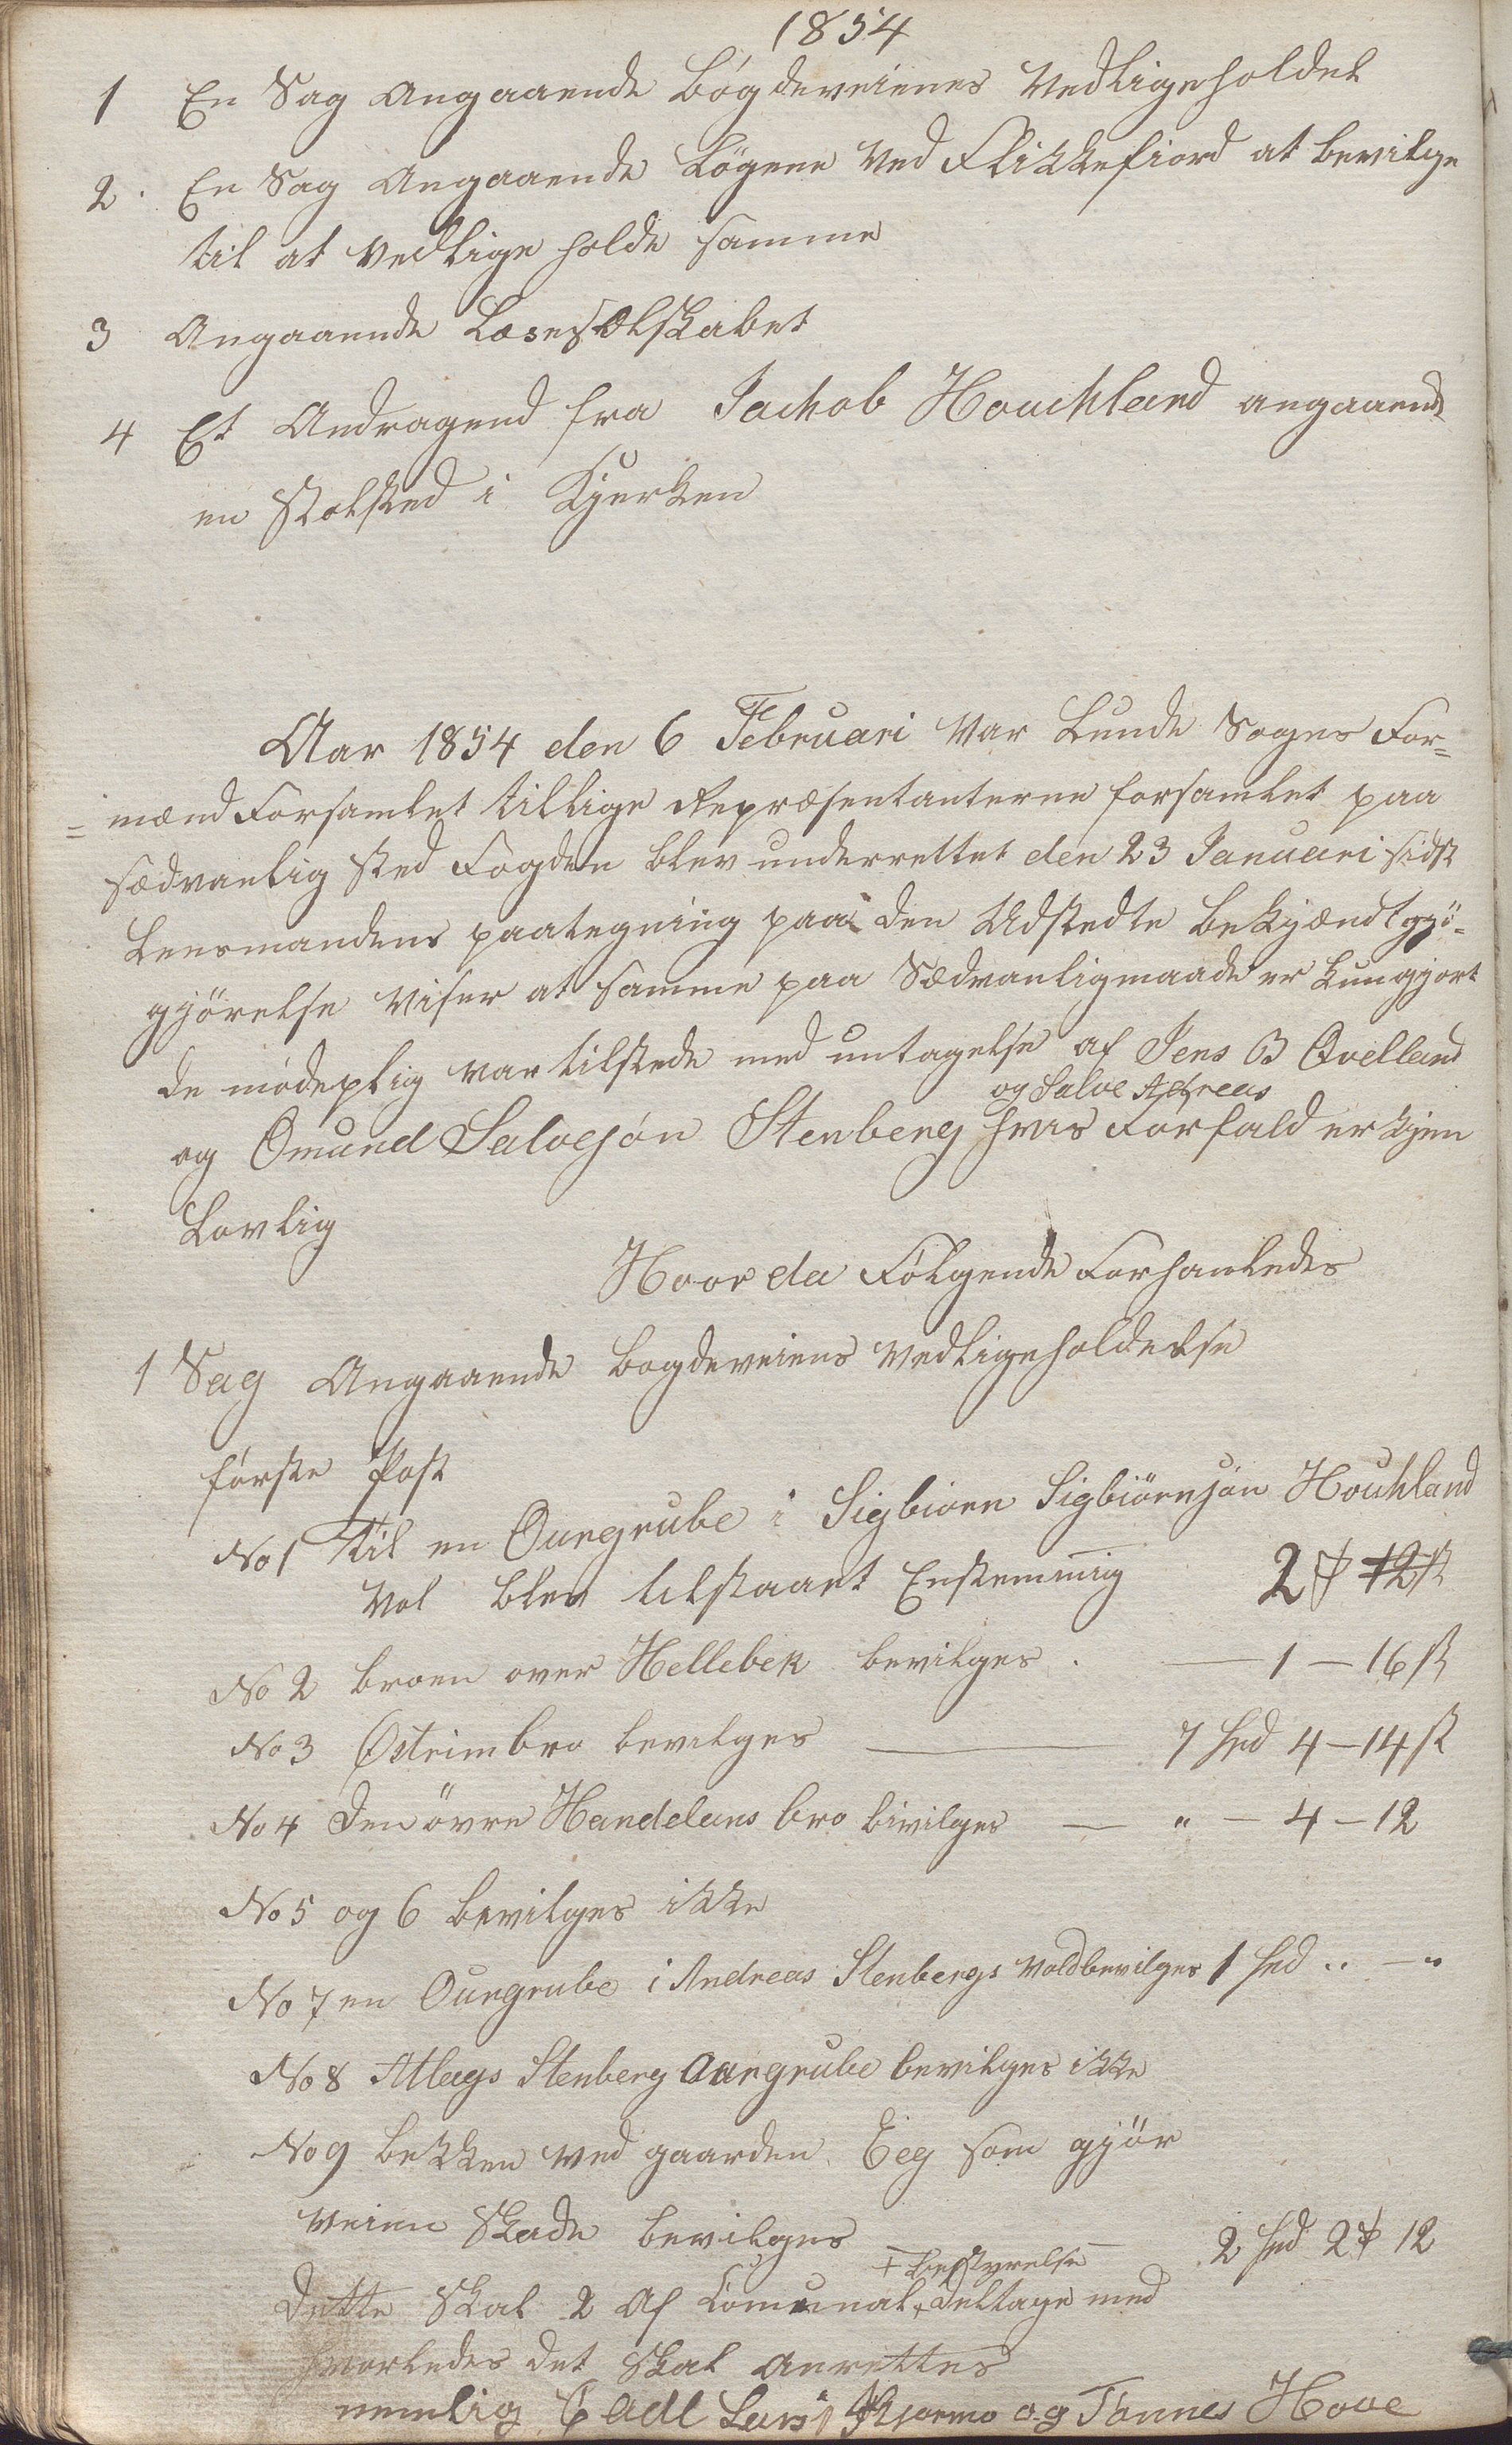 1854
1 En Sag Angaaende Bøgdeveienes Vedligeholdel
2. En Sag Angaaende Løgene Ved Flikkefiord at bevilge
til at Vedlige holde samme
3 Angaaende Læseselskabet
4 Et Andragend fra Jackob Houchland angaaende
en Stolsted i Kjerken
Aar 1854 den 6 Februari Var Lunde Sognes For=
=mænd Forsamlet tillige Repræsentanterne forsamlet paa
sædvanlig Sted Fogden blev underrettet den 23 Januari sidst
Lensmandens paategning paa den Udstedte Bekjændtgjö-
gjörelse Viser at samme paa Sædvanligmaade er Kungjort
de mødeplig var tilstede med untagelse af Jens B Qvelland
og Salve Adreas
og Omund Salvesøn Stenberg hvis Forfald er kjen
Lovlig
Hvor da Følgende Forhanledes
1 Sag Angaaende Bogdeveiens Vedligeholdelse
første Post
No 1 Til en Ourgrube i Sigbiørn Sigbiörnsøn Houchland
Vol blev tilstaaet Enstemmig 2 ₰ 12 s
No 2 broen over Hellebek bevilges . — 1 — 16 s
No 3 Østrimbro bevilges — 7 Spd 4 — 14 s
No 4 Den övre Handelans bro bivilges — " — 4 — 12
No 5 og 6 bevilges ikke
No 7 en Ourgrube i Andreas Stenbergs Vold bevilges 1 Spd .. — "
No 8 Atlags Stenberg Aurgrube bevilges ikke
No 9 bekken ved gaarden Eeg som gjör
Veien Skade bevilges 2 Spd 2 ₰ 12
+ bestyrelse
Dette Skal 2 Af Comunal + deltage med
hvorledes det Skal anrettes
nemlig Lars Skjormo og Tønnes Hove